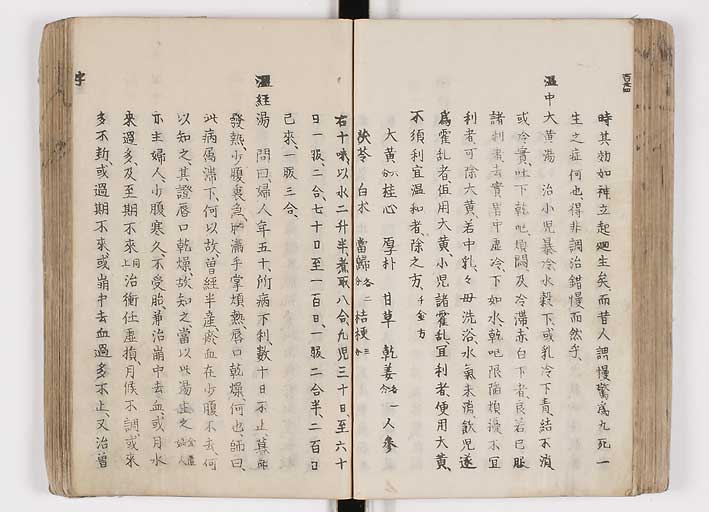 時其効如神立起廻生矣而昔人謂慢驚為九死一
生之症何也得非調治錯慢而然乎
温中大黄湯 治小児暴冷水穀下或乳冷下青結不消
或冷實吐下乾呕煩悶及冷滞赤白下者良若已服
諸利者去實胃中虚冷下如水乾呕眼陥煩擾不宜
利者可除大黄若中乳々母洗浴水氣未消飲児遂
為霍乱者但用大黄小児諸霍乱宜利者便用大黄
不須利宜温和者除之方千金方
大黄 桂心 厚朴 甘草 乾姜 人参
茯苓 白朮 當歸 桔梗
右十味以水二升半煮取八合九児三十日至六十
日一服二合七十日至一百日一服二合半二百日
已來一服三合
温経湯 問曰婦人年五十所病下利數十日不止暮即
發熱少腹裏急腹滿手掌煩熱唇口乾燥何也師曰
此病属滞下何以故曽経半産瘀血在少腹不去何
以知之其證唇口乾燥故知之當以此湯主之
亦主婦人少腹寒久不受胎兼治崩中去血或月水
來過多及至期不來 治衝任虚損月候不調或來
多不断或過期不來或崩中去血過多不止又治曽